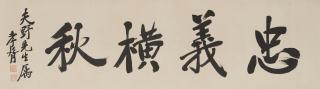 忠義橫秋
夫野先生屬
孝胥